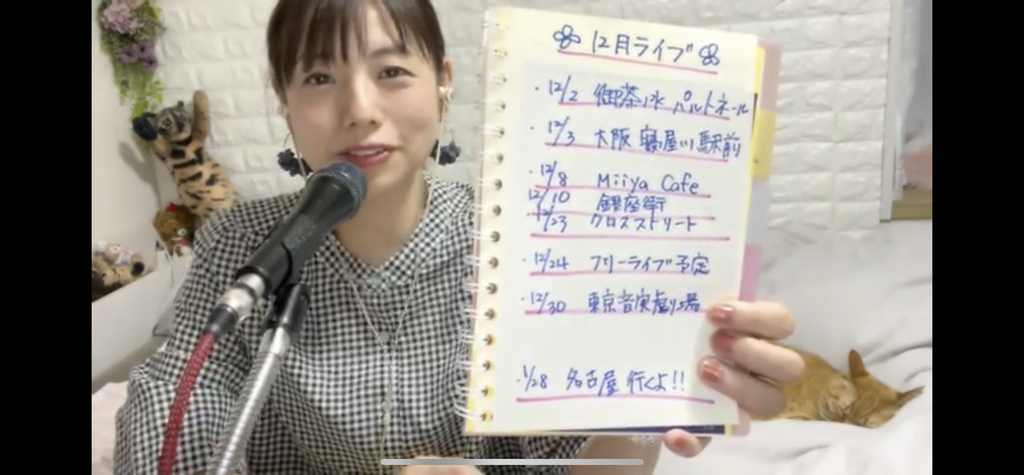 12月ライブ
・12/2 御茶ノ水 パルトネール
・12/3 大阪 寝屋川駅前
・12/8 Miiya Cafe
12/10 銀座街
・12/23 クロスストリート
・12/24 フリーライブ予定
・12/30 東京音実劇場
・1/28 名古屋 行くよ!!